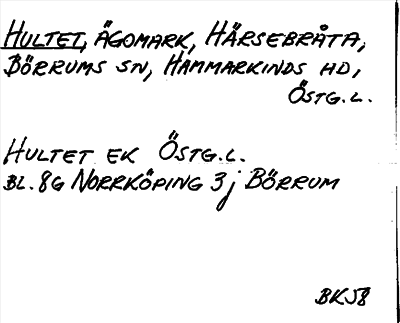 HULTET, ÄGOMARK, HÄRSEBRÅTA,
BÖRRUMS SN, HAMMARKINDS HD,
ÖSTG.L.
HULTET EK ÖSTG.L.
BL. 8G NORRKÖPING 3j BÖRRUM
BK58